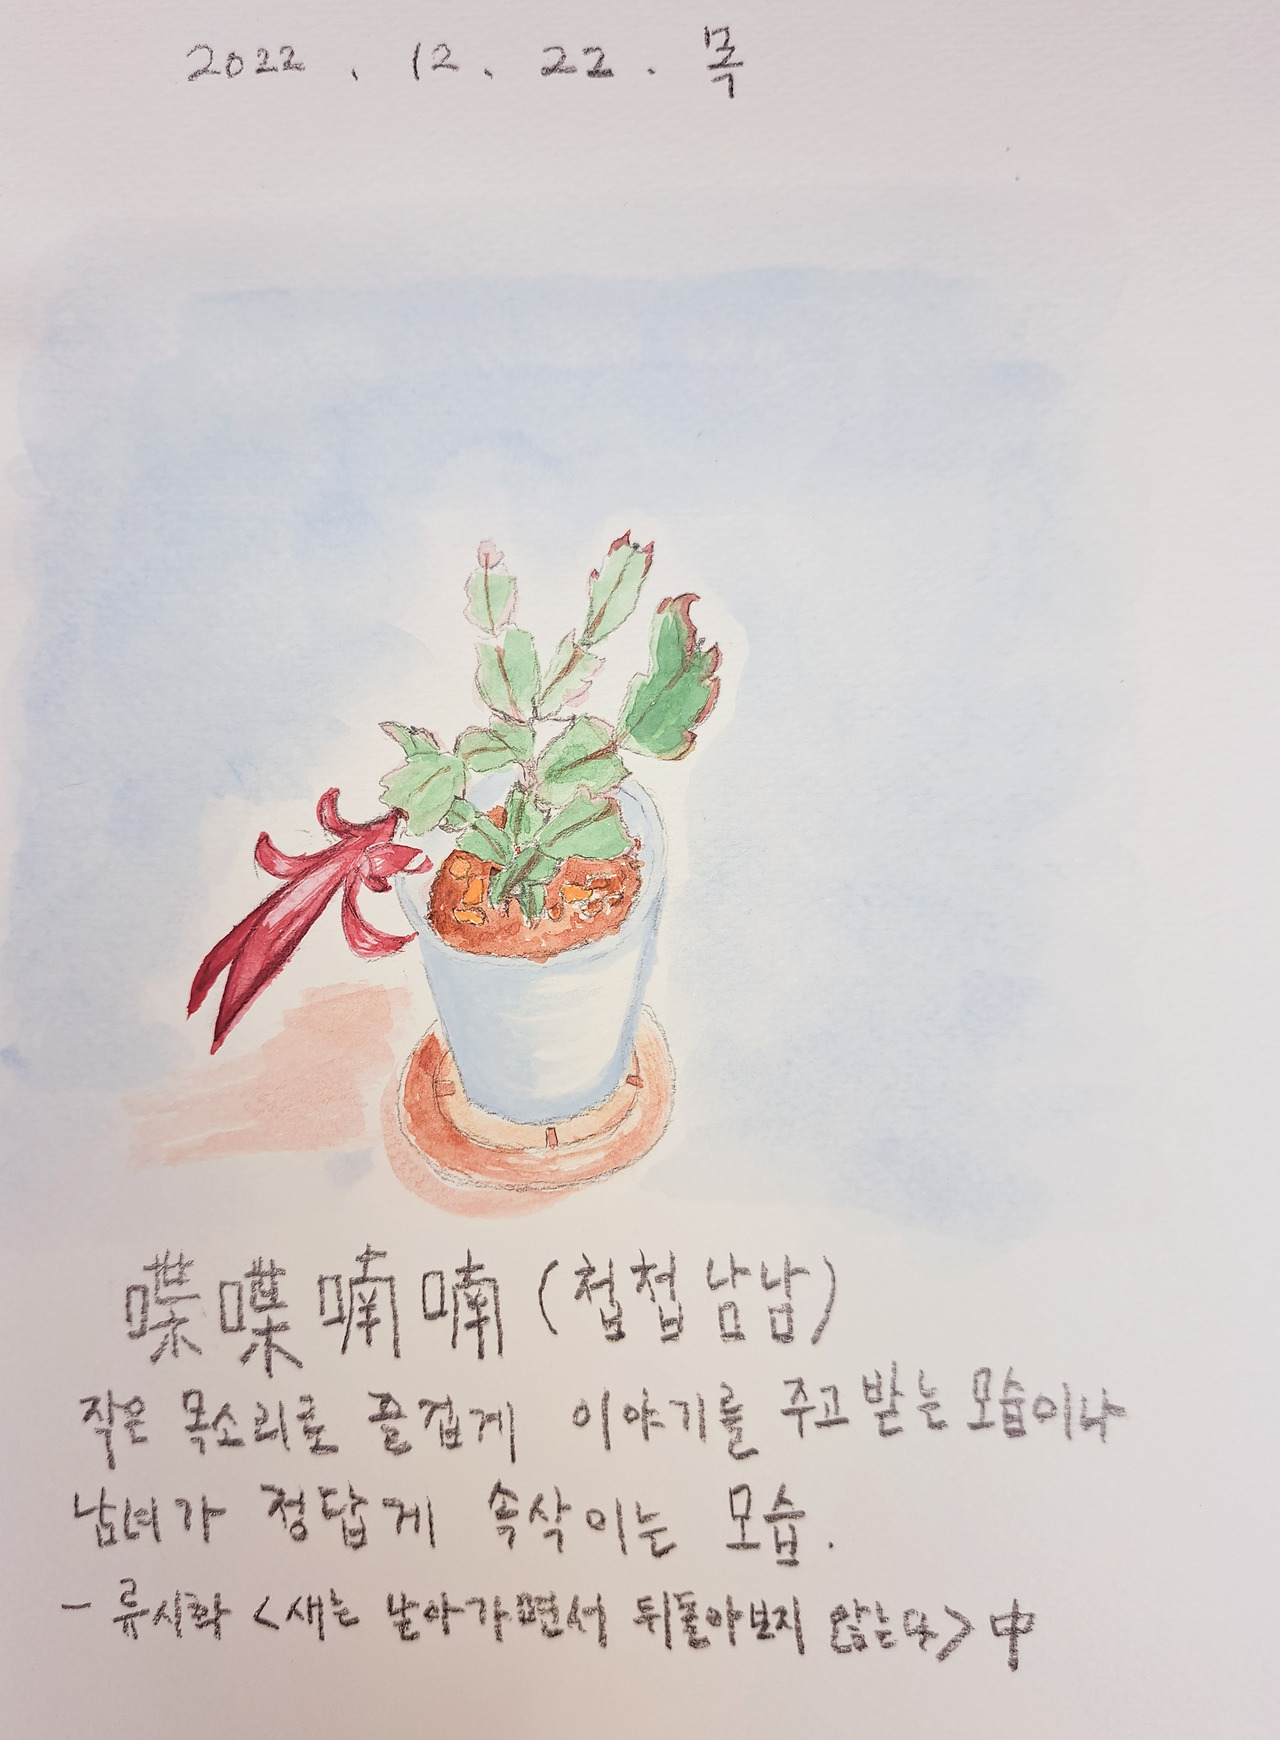 2022 . 12 . 22 . 목
喋喋喃喃 (첩첩남남)
작은 목소리로 즐겁게 이야기를 주고받는 모습이나
남녀가 정답게 속삭이는 모습.
- 류시화 <새는 날아가면서 뒤돌아보지 않는다> 中